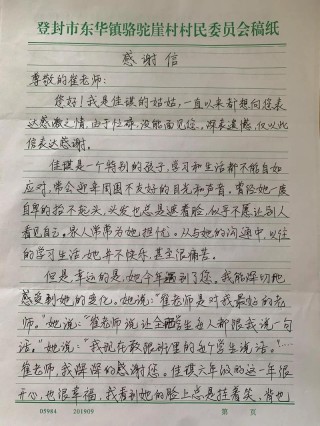 登封市东华镇骆驼崖村村民委员会稿纸
感谢信
尊敬的崔老师：
您好！我是佳琪的妈妈，一直以来都想向您表
达感激之情，由于忙碌，没能面见您，深表遗憾，仅以此
信表达感谢。
佳琪是一个特别的孩子，学习和生活都不能自如
应对，常会迎来周围不友好的目光和声音，害得她一度
自卑的抬不起头，头发也总是遮着脸，似乎不愿让别人
看见自己。家人常常为她担忧。从与她的沟通中，以往
的学习生活她并不快乐，甚至很痛苦。
但是幸运的是，她今年遇到了您。我能深切地
感受到她的变化。她说："崔老师是对我最好的老
师。"她说："崔老师说让全班学生每人都跟我说一句
话。"她说："我现在敢跟班里的每个学生说话。"……
崔老师，我深深的感谢您。佳琪六年级的这一年很
开心，也很幸福，我看到她的脸上总是挂着笑，背也
05984 201909 第 页